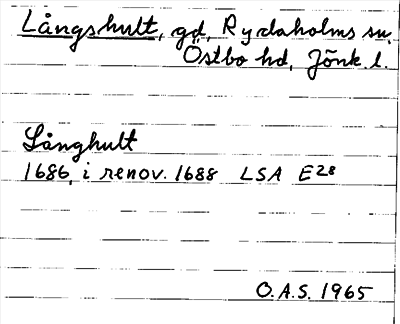 Långshult, gd, Rydaholms sn,
Östbo hd, Jönk. l.
Långhult
1686, i renov. 1688 LSA E28
O.A.S. 1965